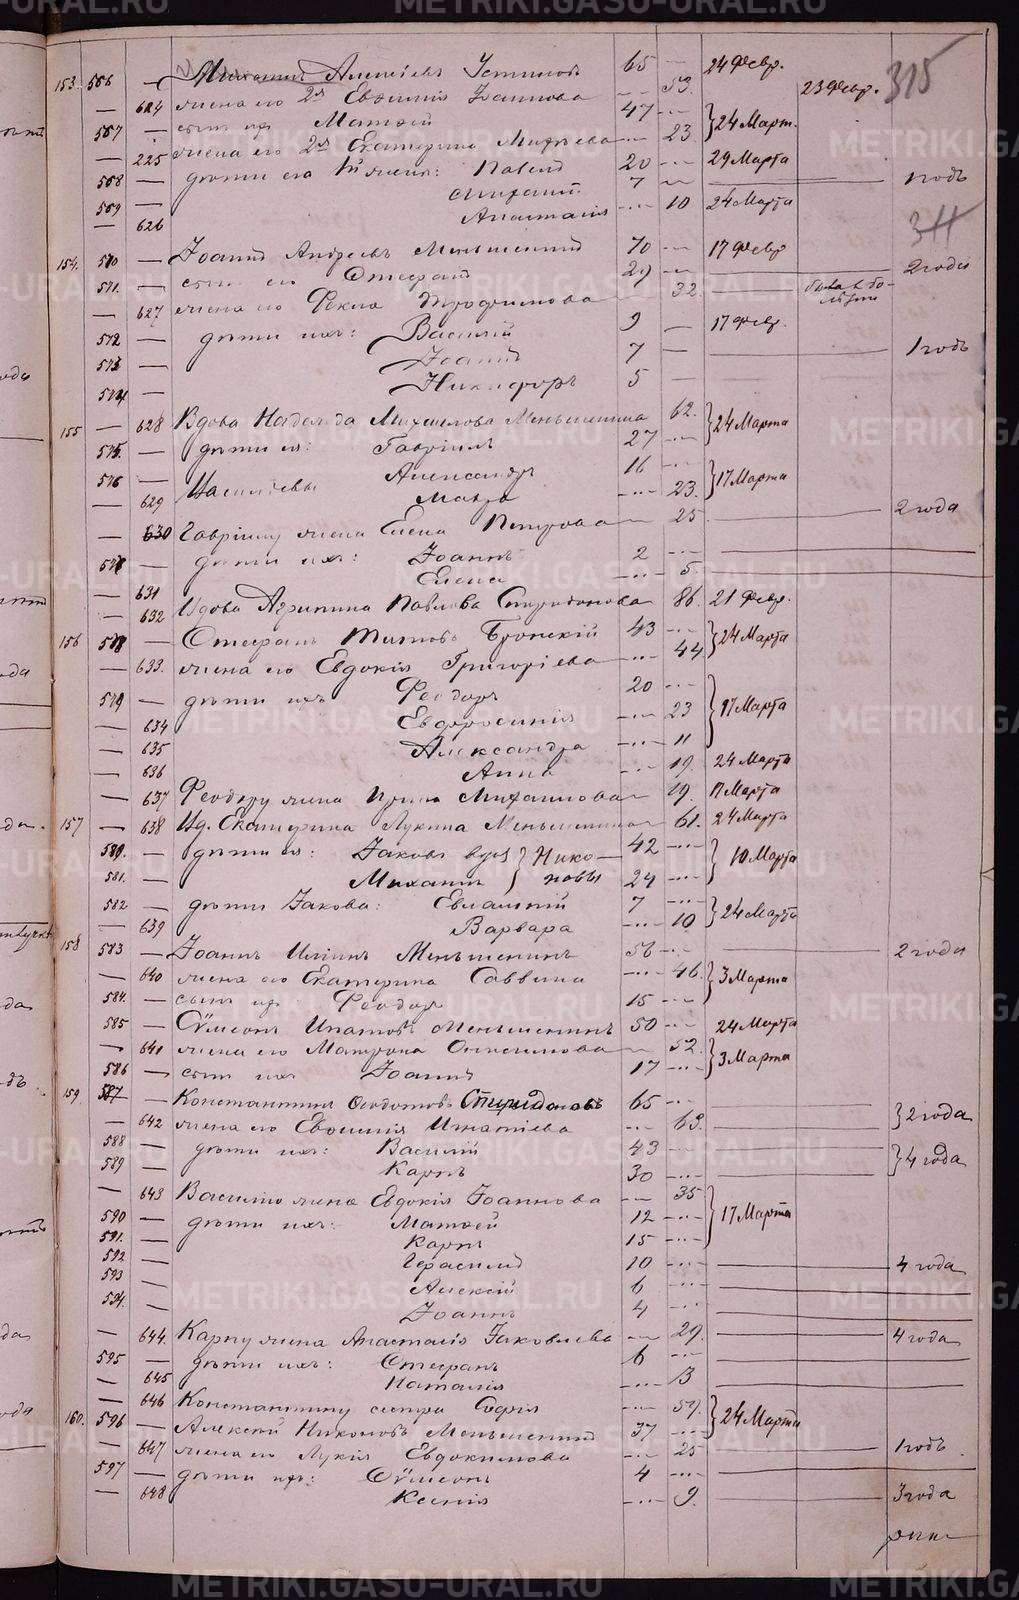 153 566 — Михаилъ Алексѣевъ Устиновъ 65 — 24 Февр.
315
— 624 жена его 2я Евѳимія Іоаннова — 59. 23 Февр.
567 — сынъ их Матѳей 47 — } 24 Март.
— 225 жена его 2я Екатерина — 23
568 — дѣти его 1й жены: Павелъ 20 — 24 Марта
Михаилъ 7 — 1 годъ
569 — 626 Анастасія — 10 24 Марта
311
154. 570 — Іоаннъ Андреевъ Меньшенинъ 70 — 17 Февр
571. — сынъ его Стефанъ 29 — 2 годы
— 627 жена его Фекла Трофимова 32. была в болѣзни
572 — дѣти ихъ: Василій 9 — 17 Февр.
573 — Іоаннъ 7 — 1 годъ
574 — Никифоръ 5 —
155 — 628 Вдова Надежда Михайлова Меньшенина 62. } 24 Марта
575. — дѣти ея: Гавріилъ 27 —
576 — Александръ 16 — } 17 Марта
629 Мавра — 23.
— 630 Гавріилу жена Елена Петрова — 25 2 года
577 — дѣти ихъ: Іоаннъ 2 —
— 631 Елена — 5.
— 632 Вдова Агрипина Павлова Спиридонова 86. 21 Февр.
156 578 — Стефанъ Титовъ Бронскій 43 — } 24 Марта
— 633. жена его Евдокія Григоріева — 44
579 — дѣти ихъ Феодоръ 20 — } 17 Марта
— 634 Евфросинія — 23
— 635 Александра — 11
— 636 Анна — 19. 24 Марта
— 637 Феодору жена Ирина Михаилова — 19. 17 Марта
157 — 638 Вд. Екатерина Лукина Меньшенина — 61. 24 Марта
580. — дѣти ея: Іаковъ вдов } Нико- 42 — } 10 Марта
581. — Михаилъ новы 24 —
582 — дѣти Іакова: Евлампій 7 — } 24 Марта
— 639 Варвара — 10
158 583 — Іоаннъ Ильинъ Меньшенинъ 56 — 2 года
— 640 жена его Екатерина Саввина — 46. } 3 Марта
584. — сынъ их Феодоръ 15 —
585 — Сѵмеонъ Ипатовъ Меньшенинъ 50 — 24 Марта
— 641 жена его Матрона Онисимова — 52. } 3 Марта
586 — сынъ ихъ Іоаннъ 17 —
159. 587 — Константинъ Феодотовъ Спиридоновъ 65 — } 2 года
— 642 жена его Евѳимія Игнатіева — 63.
588 — дѣти ихъ: Василій 43 — } 4 года
589 — Карпъ 30 —
— 643 Василію жена Евдокія Іоаннова — 35 } 17 Марта
590 — дѣти ихъ: Матѳей 12 —
591. — Карпъ 15 —
592 — Герасимъ 10 — 4 года
593 — Алексій 6 —
594. — Іоаннъ 4 —
— 644. Карпу жена Анастасія Іаковлева — 29. 4 года
595 — дѣти ихъ: Стефанъ 6 —
— 645 Наталія — 3
— 646 Константину сестра Софія — 57. } 24 Марта
160. 596 — Алексій Никоновъ Меньшенинъ 37 —
— 647 жена его Лукія Евдокимова — 25 1 годъ
597 — дѣти их: Сѵмеонъ 4 —
— 648 Ксенія — 9. 3 года